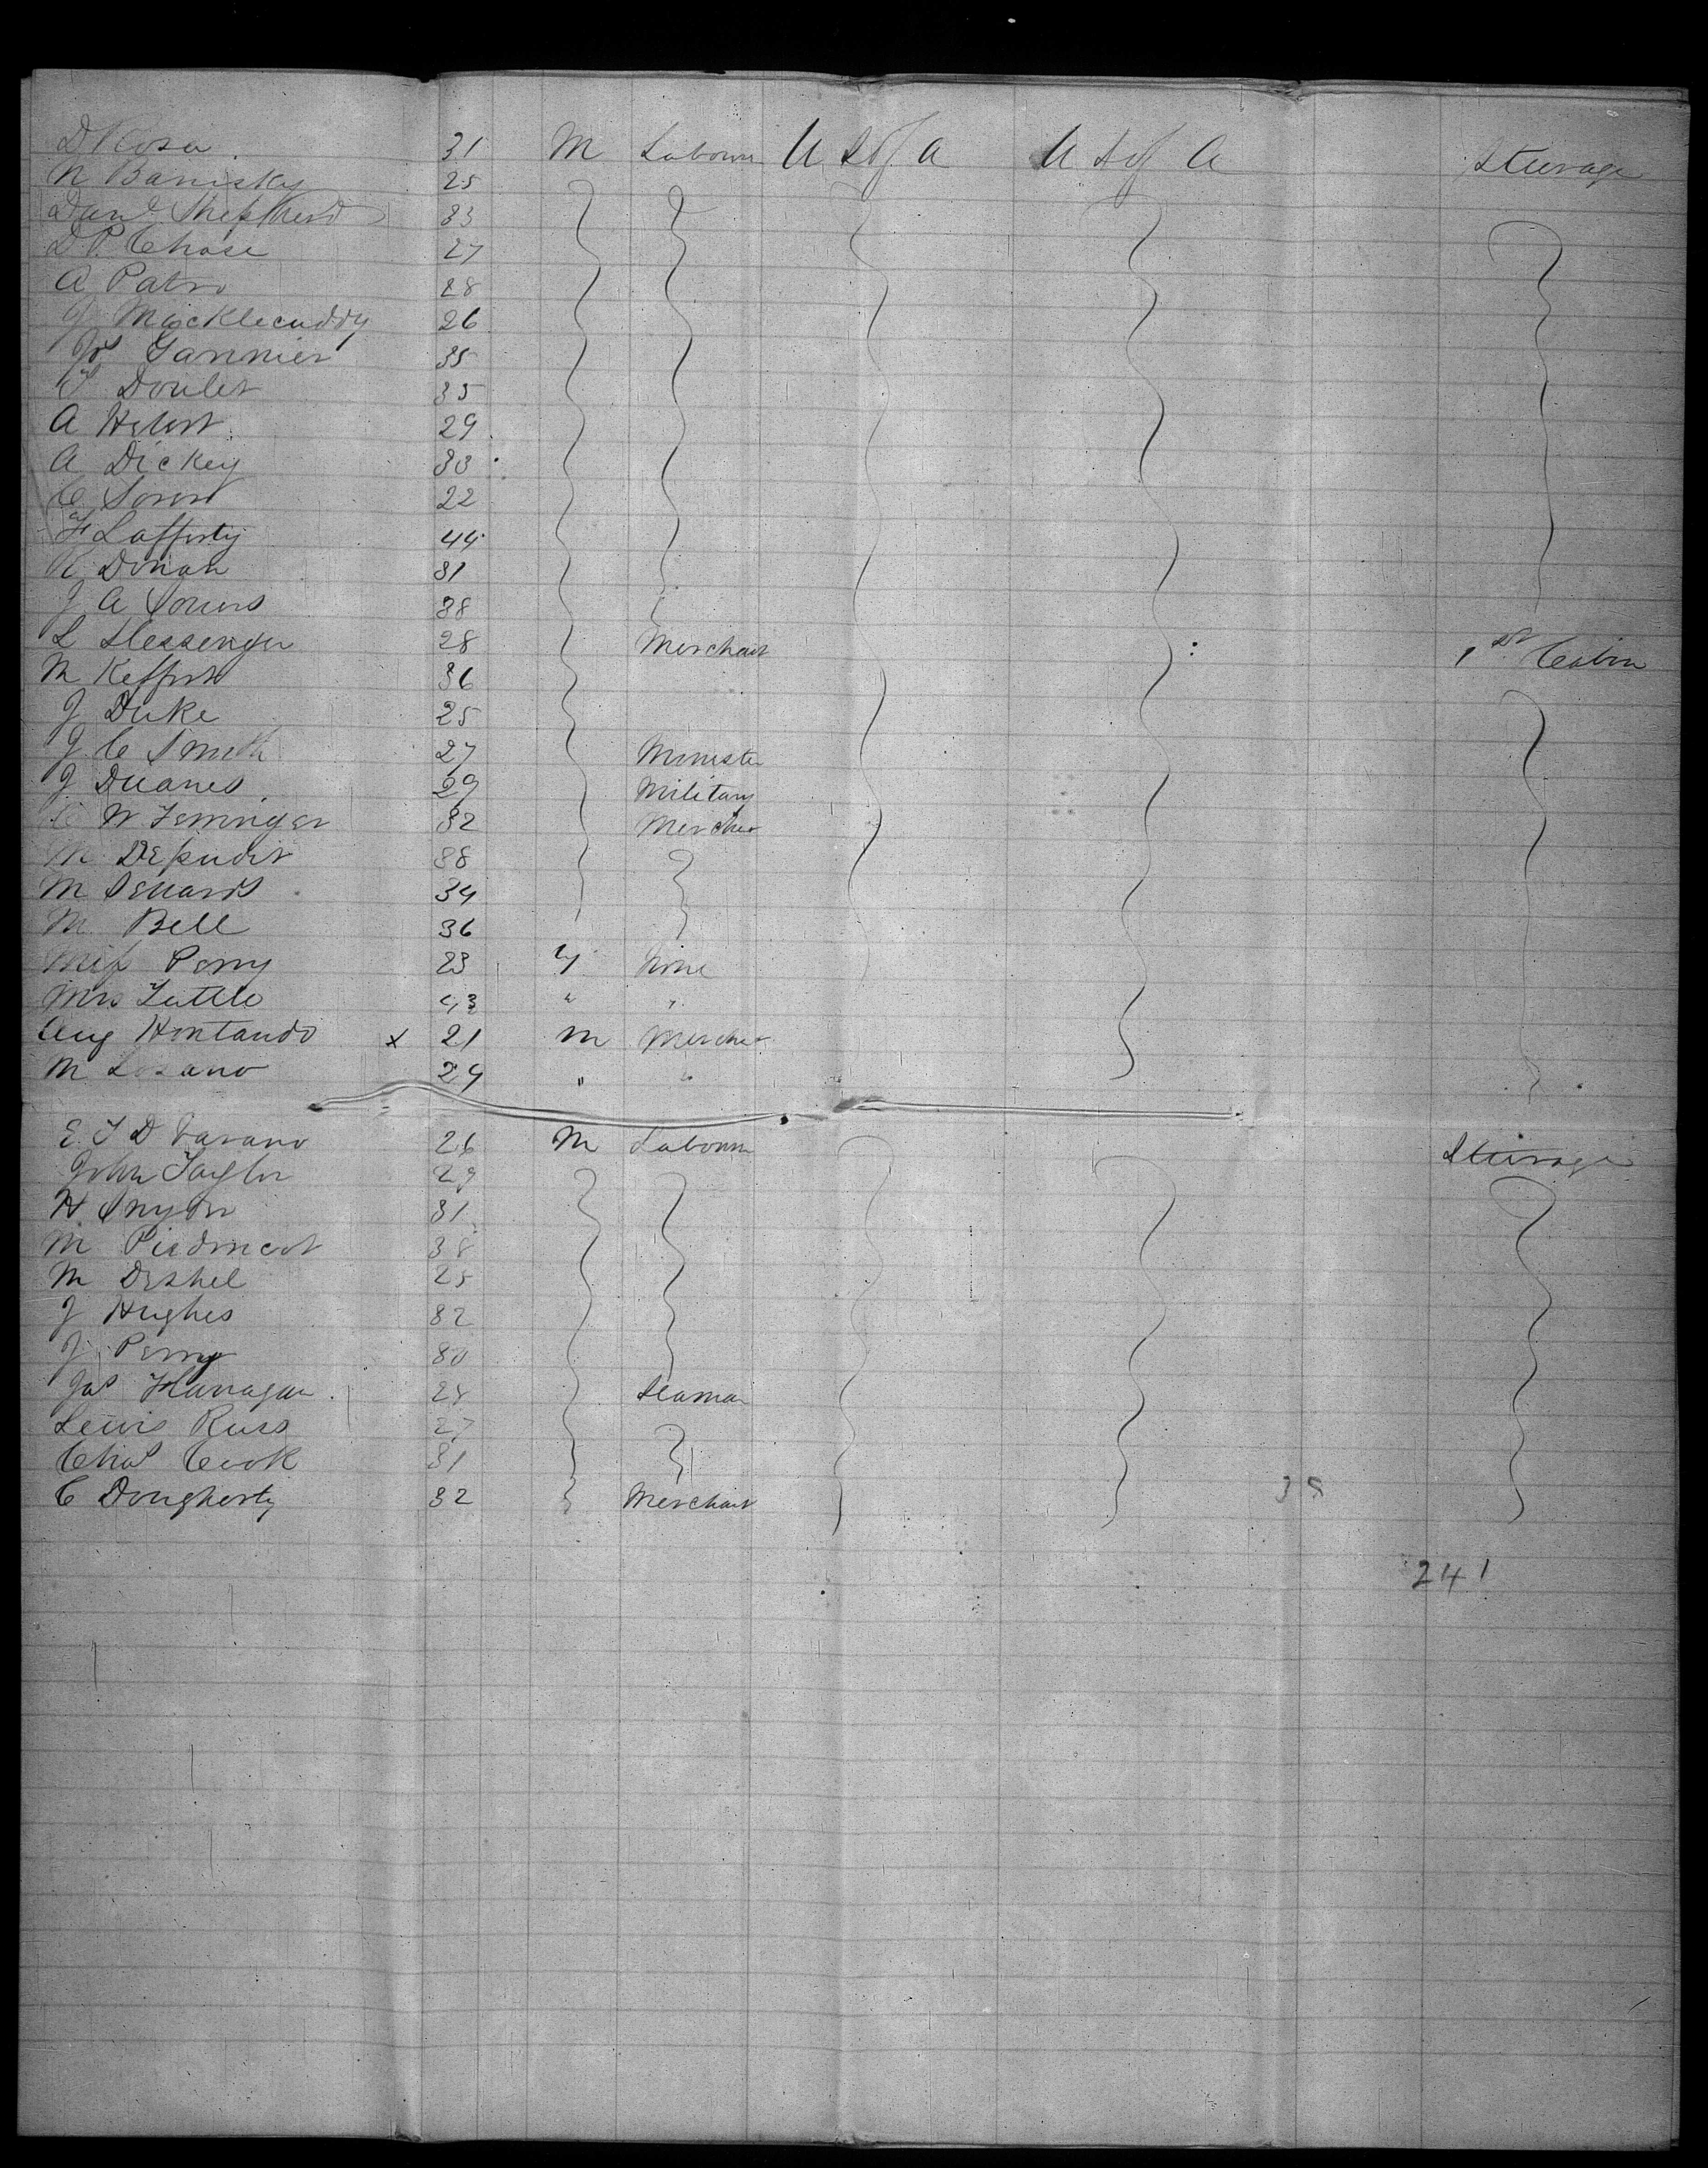 D Rosa 31 M Labourer U S of A U S of A Steerage
N Banisky 25
Danl Shepherd 33
D. P. Chase 27
A Patro 28
J Macklecuddy 26
Jos Fannier 35
Doulet 35
A Hebert 29
A Dickey 30
C 22
F Lafferty 44
R Donah 31
J A Somers 38
L Slessenger 28 Merchant 1st Cabin
M 36
J Duke 25
J C Smith 27 Minister
J Duanes 29 Military
C W 32 Merchr
M Depudit 38
M 34
M Bell 36
Miss Perry 23 f None
Mrs Tuttle 43 " "
Aug Hontando x 21 M Mercher
M Lozano 24 " "
E. T D Varano 26 M Labourer Steerage
John Taylor 29
H Snyder 31
M Piedmont 38
M Deshel 25
J Hughes 32
J Perry 30
Jas Flanagan 28 Seaman
Lewis Russ 27
Chas Cook 31
C Dougherty 32 Merchant 38
241